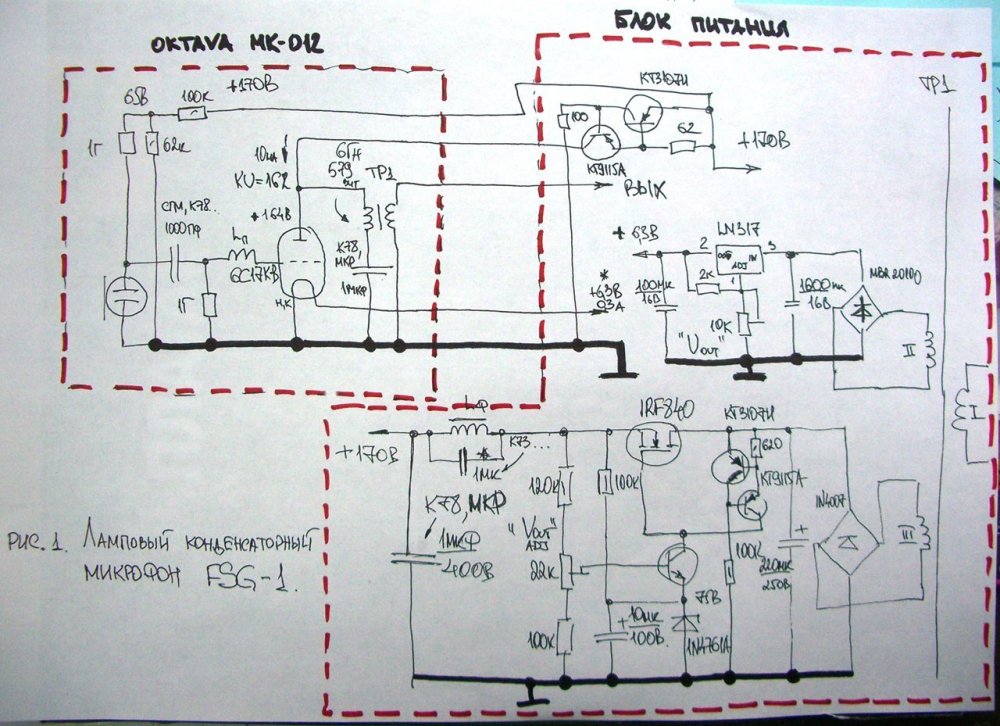 БЛОК ПИТАНИЯ
OKTAVA MK-012
65В
100К
+170В
1Г
62К
10мА
KU=162
6ГН
579
ТР1
+164В
СГМ, К78..
1000ПФ
Lп
6С17КВ
1Г
Н,К
К78,
МКР,
1МКР
100
КТ3107И
62
КТ9115А
+170В
ВЫХ
+6,3В
*
+6,3В
0,3А
LM317
2
3
OUT
IN
ADJ
1
2К
100МК
16В
10К
"VOUT"
1600МК
16В
MBR20100
II
ТР1
I
Lф
+170В
*
1МК
К73...
К78, МКР
1МКФ
400В
IRF840
КТ3107И
620
КТ9115А
120К
100К
"VOUT"
ADJ
22К
100К
10МК
100В
75В
1N4761A
100К
220МК
250В
1N4007
III
РИС. 1. ЛАМПОВЫЙ КОНДЕНСАТОРНЫЙ
МИКРОФОН FSG-1.